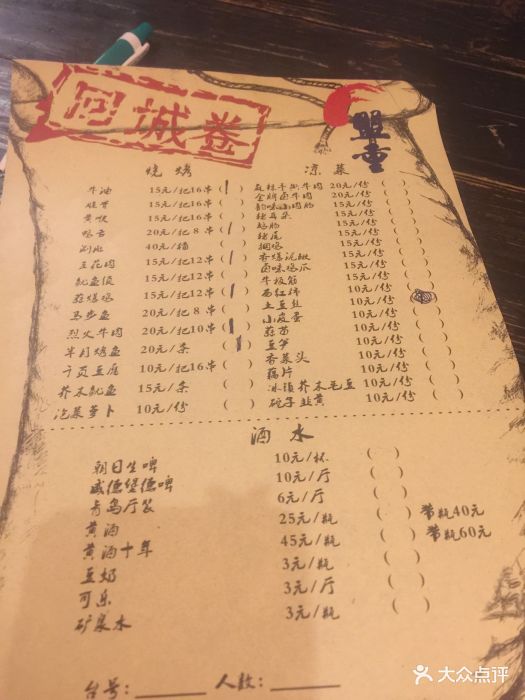 回城卷
盟重
烧烤
牛油 15元/把16串( )
脆骨 15元/把16串( )
黄喉 15元/把16串( )
鸡舌 20元/把8串( )
涮肚 40元/桶 ( )
五花肉 15元/把12串( )
秘鱼 15元/把12串( )
蒜爆鸡 15元/把12串( )
马步鱼 20元/把8串( )
烈火牛肉 20元/把10串( )
半月烤鱼 20元/条 ( )
千页豆腐 10元/把16串( )
芥末鱿鱼 15元/条 ( )
泡菜萝卜 10元/份 ( )
凉菜
麻辣手撕牛肉 20元/份 ( )
金牌卤牛肉 20元/份 ( )
韵味小肉肠 15元/份 ( )
猪耳朵 15元/份 ( )
鸡胗 15元/份 ( )
猪尾 15元/份 ( )
捆鸡 15元/份 ( )
香爆泥鳅 15元/份 ( )
卤味鸡爪 15元/份 ( )
牛板筋 15元/份 ( )
西红柿 10元/份 ( )
土豆丝 10元/份
小皮蛋 10元/份 ( )
蒜苗 10元/份 ( )
豆笋 10元/份 ( )
香菜头 10元/份 ( )
藕片 10元/份 ( )
冰镇芥末毛豆 10元/份 ( )
碗子韭黄 10元/份 ( )
酒水
朝日生啤 10元/杯 ( )
威德堡德啤 10元/厅 ( )
青岛厅装 6元/厅 ( )
黄酒 25元/瓶 ( ) 带瓶40元
黄酒十年 45元/瓶 ( ) 带瓶60元
豆奶 3元/瓶 ( )
可乐 3元/厅 ( )
矿泉水 3元/瓶 ( )
台号:______ 人数:______
大众点评